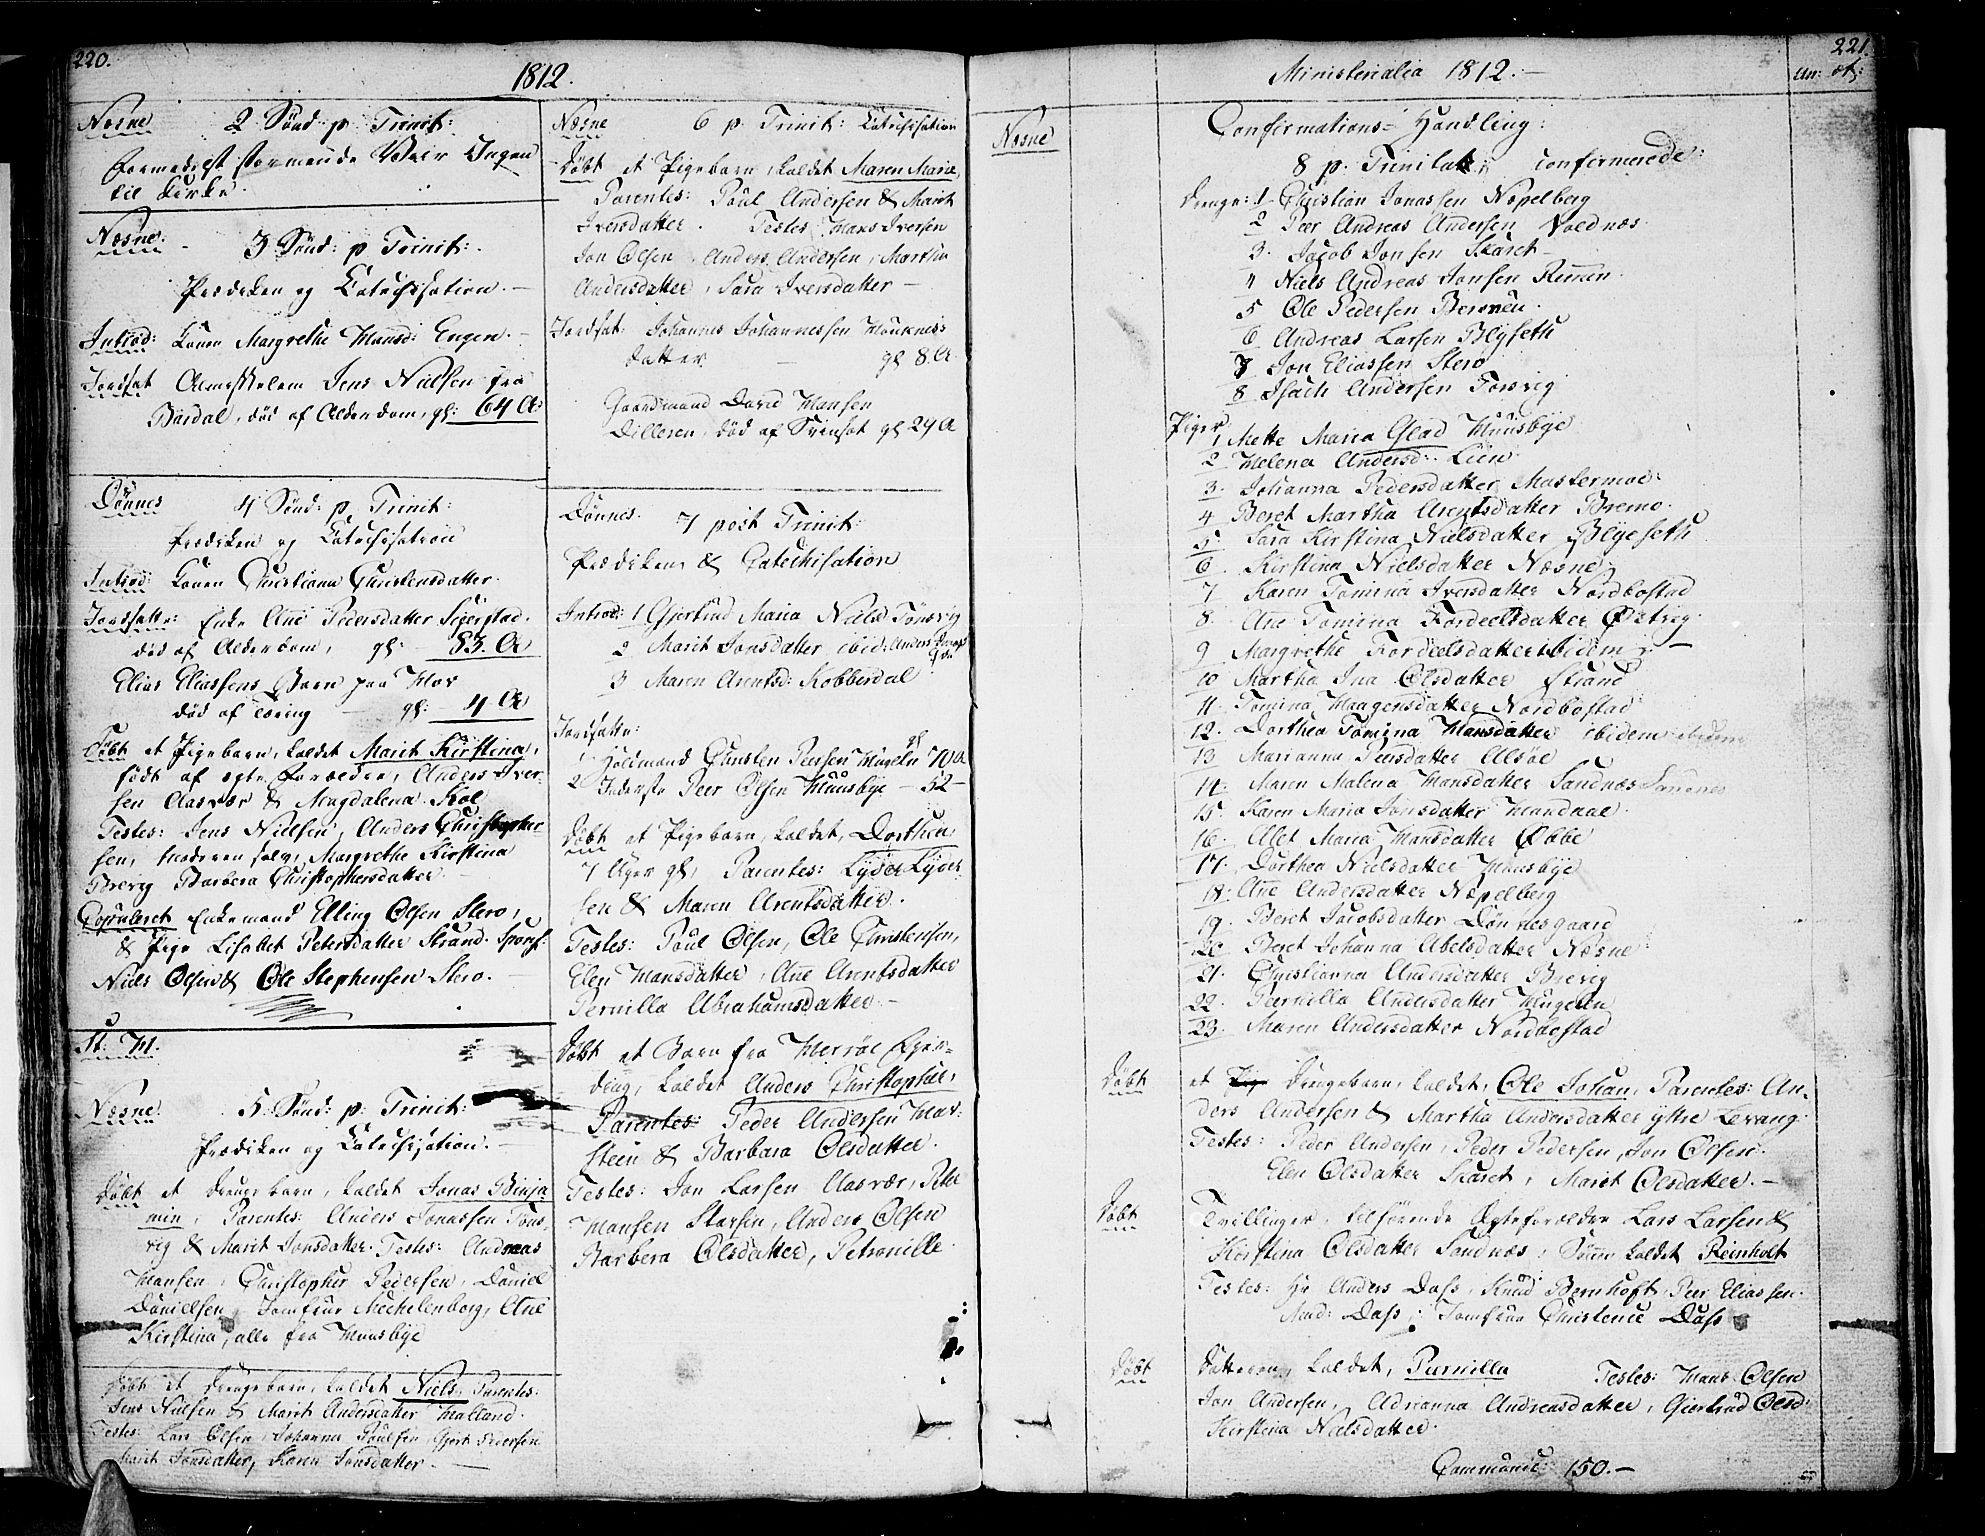 220.
1812.
Næsne 2 Sønd: p. Trinit:
formedelst stormende Veir Ingen
til Kirke.
Næsne. 3 Sønd: p Trinit:
Prædiken og Catechisation.
Introd: Konen Margrethe Hansd: Engen.
Jordfæt Almisselem Jens Nielsen fra
Bardal, død af Alderdom, gl: 64 A:
Dønnes 4 Sønd: p. Trinit:
Prædiken og Catechisation
Introd: Konen Christiana Christensdatter.
Jordfætte: Enke Ane Pedersdatter Sejerstad.
død af Alderdom, gl: 83. A
Elias Eliassens Barn paa Hov
død af Tæring gl: 4 A
Døbt et Pigebarn, kaldet Marit Kirstina,
født af ægte Forældre, Anders Iver-
sen Aasvær & Magdalena Kol
Testes: Jens Nielsen, Anders Christopher-
sen, Faderen selv, Margrethe Kirstina
Brevig Barbera Christophersdatter
Copuleret Enkemand Elling Olsen Stero,
& Pige Lisabet Petersdatter Strand. Spons:
Niels Olsen & Ole Stephensen Stero.
St: H.
Næsne. 5 Sønd: p. Trinit:
Prædiken og Catechisation.
Døbt et Drengebarn, kaldet Jonas Binja
min, Parentes: Anders Jonassen Tøns-
vig & Marit Jonsdatter. Testes: Andreas
Hansen, Christopher Pedersen, Daniel
Danielsen, Jomfrue Mechelenborg, Ane
Kirstina, alle fra Huusbye
Døbt et Drengebarn, kaldet Niels. Parentes:
Jens Nielsen & Marit Andersdatter Halland.
Testes: Lars Olsen, Johannes Poulsen, Gjert Iversen
Marit Jonsdatter, Karen Jonsdatter.
Næsne 6 p. Trinit: Catechisation
Døbt et Pigebarn, kaldet Maren Maria,
Parentes: Poul Andersen & Marit
Iversdatter. Testes Hans Iversen
Jon Olsen, Anders Andersen, Martha
Andersdatter, Sara Iversdatter
Jordfæt: Johannes Johannessen
datter gl 8. A.
Gaardmand David Hansen
Dilleren, død af gl 29 A
Dønnes. 7 post Trinit:
Prædiken & Catechisation
Introd: 1 Gjertrud Maria Niels Tønsvig
2 Marit Jonsdatter ibid: Anders
3 Maren Arentsd: Kobberdal
Jordfætte:
1 Christen Peersen Hugeln gl 70 A
2 Inderste Peer Olsen Huusbye - 52 -
Døbt et Pigebarn, kaldet, Dorthea
7 Uger gl, Parentes: Lyder Lyder-
sen & Maren Arentsdatter.
Testes: Poul Olsen, Ole Christensen,
Elen Hansdatter, Ane Arentsdatter
Pernilla Abrahamsdatter.
Døbt et Barn fra Herrøe
kaldet Anders Christopher,
Parentes: Peder Andersen Hav-
steen & Barbara Olsdatter.
Testes: Jon Larsen Aasvær, Peter
Hansen Anders Olsen
Barbera Olsdatter, Petronille.
Ministerialia 1812.
221.
un: at:
Næsne
Confirmations-Handling:
8 p. Trinitat: confirmerede:
Drenge: 1 Christian Jonassen Næpelberg
2 Peer Andreas Andersen Voldnæs
3. Jacob Jonsen Skaret
4 Niels Andreas Jonsen Remen
5 Ole Pedersen Berøen
6 Andreas Larsen Blyseth
7 Jon Eliassen Stero
8 Isach Andersen Forsvig
Piger
1, Mette Maria Glad Huusbye
2. Helena Andersd: Lien
3. Johanna Pedersdatter Mastermoe
4 Beret Martha Arentsdatter Bremo
5 Sara Kirstina Nielsdatter Blyeseth
6 Kirstina Nielsdatter Næsne
7 Karen Tomina Iversdatter Nordbostad
8. Ane Tomina Fordeelsdatter Ørtvig
9 Margrethe Fordeelsdatter ibidem
10 Martha Ina Olsdatter Strand
11. Tomina Haagensdatter Nordbostad
12. Dorthea Tomina Hansdatter ibidem
13 Marianna Peersdatter Alsøe
14. Maren Malena Hansdatter Sandnæs
15. Karen Maria Jonsdatter Handnæs
16. Alet Maria Hansdatter
17. Dorthea Nielsdatter Huusbye
18. Ane Andersdatter Næpelberg
19. Beret Jacobsdatter Dønnesgaard
20 Beret Johanna Abelsdatter Næsne
21. Christianna Andersdatter Brevig
22. Pernilla Andersdatter Hugelen
23. Maren Andersdatter Nordbostad
Døbt et Drengebarn, kaldet, Ole Johan, Parentes: An-
ders Andersen & Martha Andersdatter yttre Levang.
Testes: Peder Andersen, Peder Pedersen, Jon Olsen.
Elen Olsdatter Skaret, Marit Olsdatter.
Døbt Tvillinger, tilhørende Ægteforældre Lars Larsen &
Kirstina Olsdatter Sandnæs, Sønn kaldet Reinholt
Testes: Hr Anders Dass, Knud Bernhoft, Peer Eliassen.
Mad: Dass, Jomfrue Christence Dass
Døbt Datteren, kaldet, Pernilla Testes: Hans Olsen
Jon Andersen, Adrianna Andreasdatter, Giertrud Olsd:
Kirstina Nielsdatter.
Communic: 150.